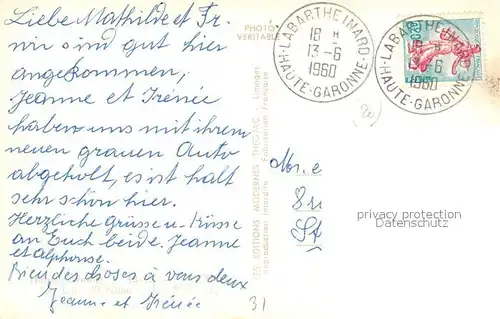 Liebe Mathilde et Fr.
wir sind gut hier
angekommen,
Jeanne et Irénée
haben uns mit ihrem
neuen grauen Auto
abgeholt, es ist halt
sehr schön hier.
Herzliche grüsse u. Küsse
an Euch beide. Jeanne
et alphonse.
Bien des choses à vous deux
Jeanne et Irénée
31
PHOTO
VERITABLE
LABARTHE INARD
18 H
13-6
1960
HAUTE-GARONNE
LABARTHE INARD
13-6
1960
HAUTE-GARONNE
LES EDITIONS MODERNES "THEOJAC" - Limoges
Reproduction interdite - Fabrication Française
Mr. e
8 ru
St
privacy protection
Datenschutz